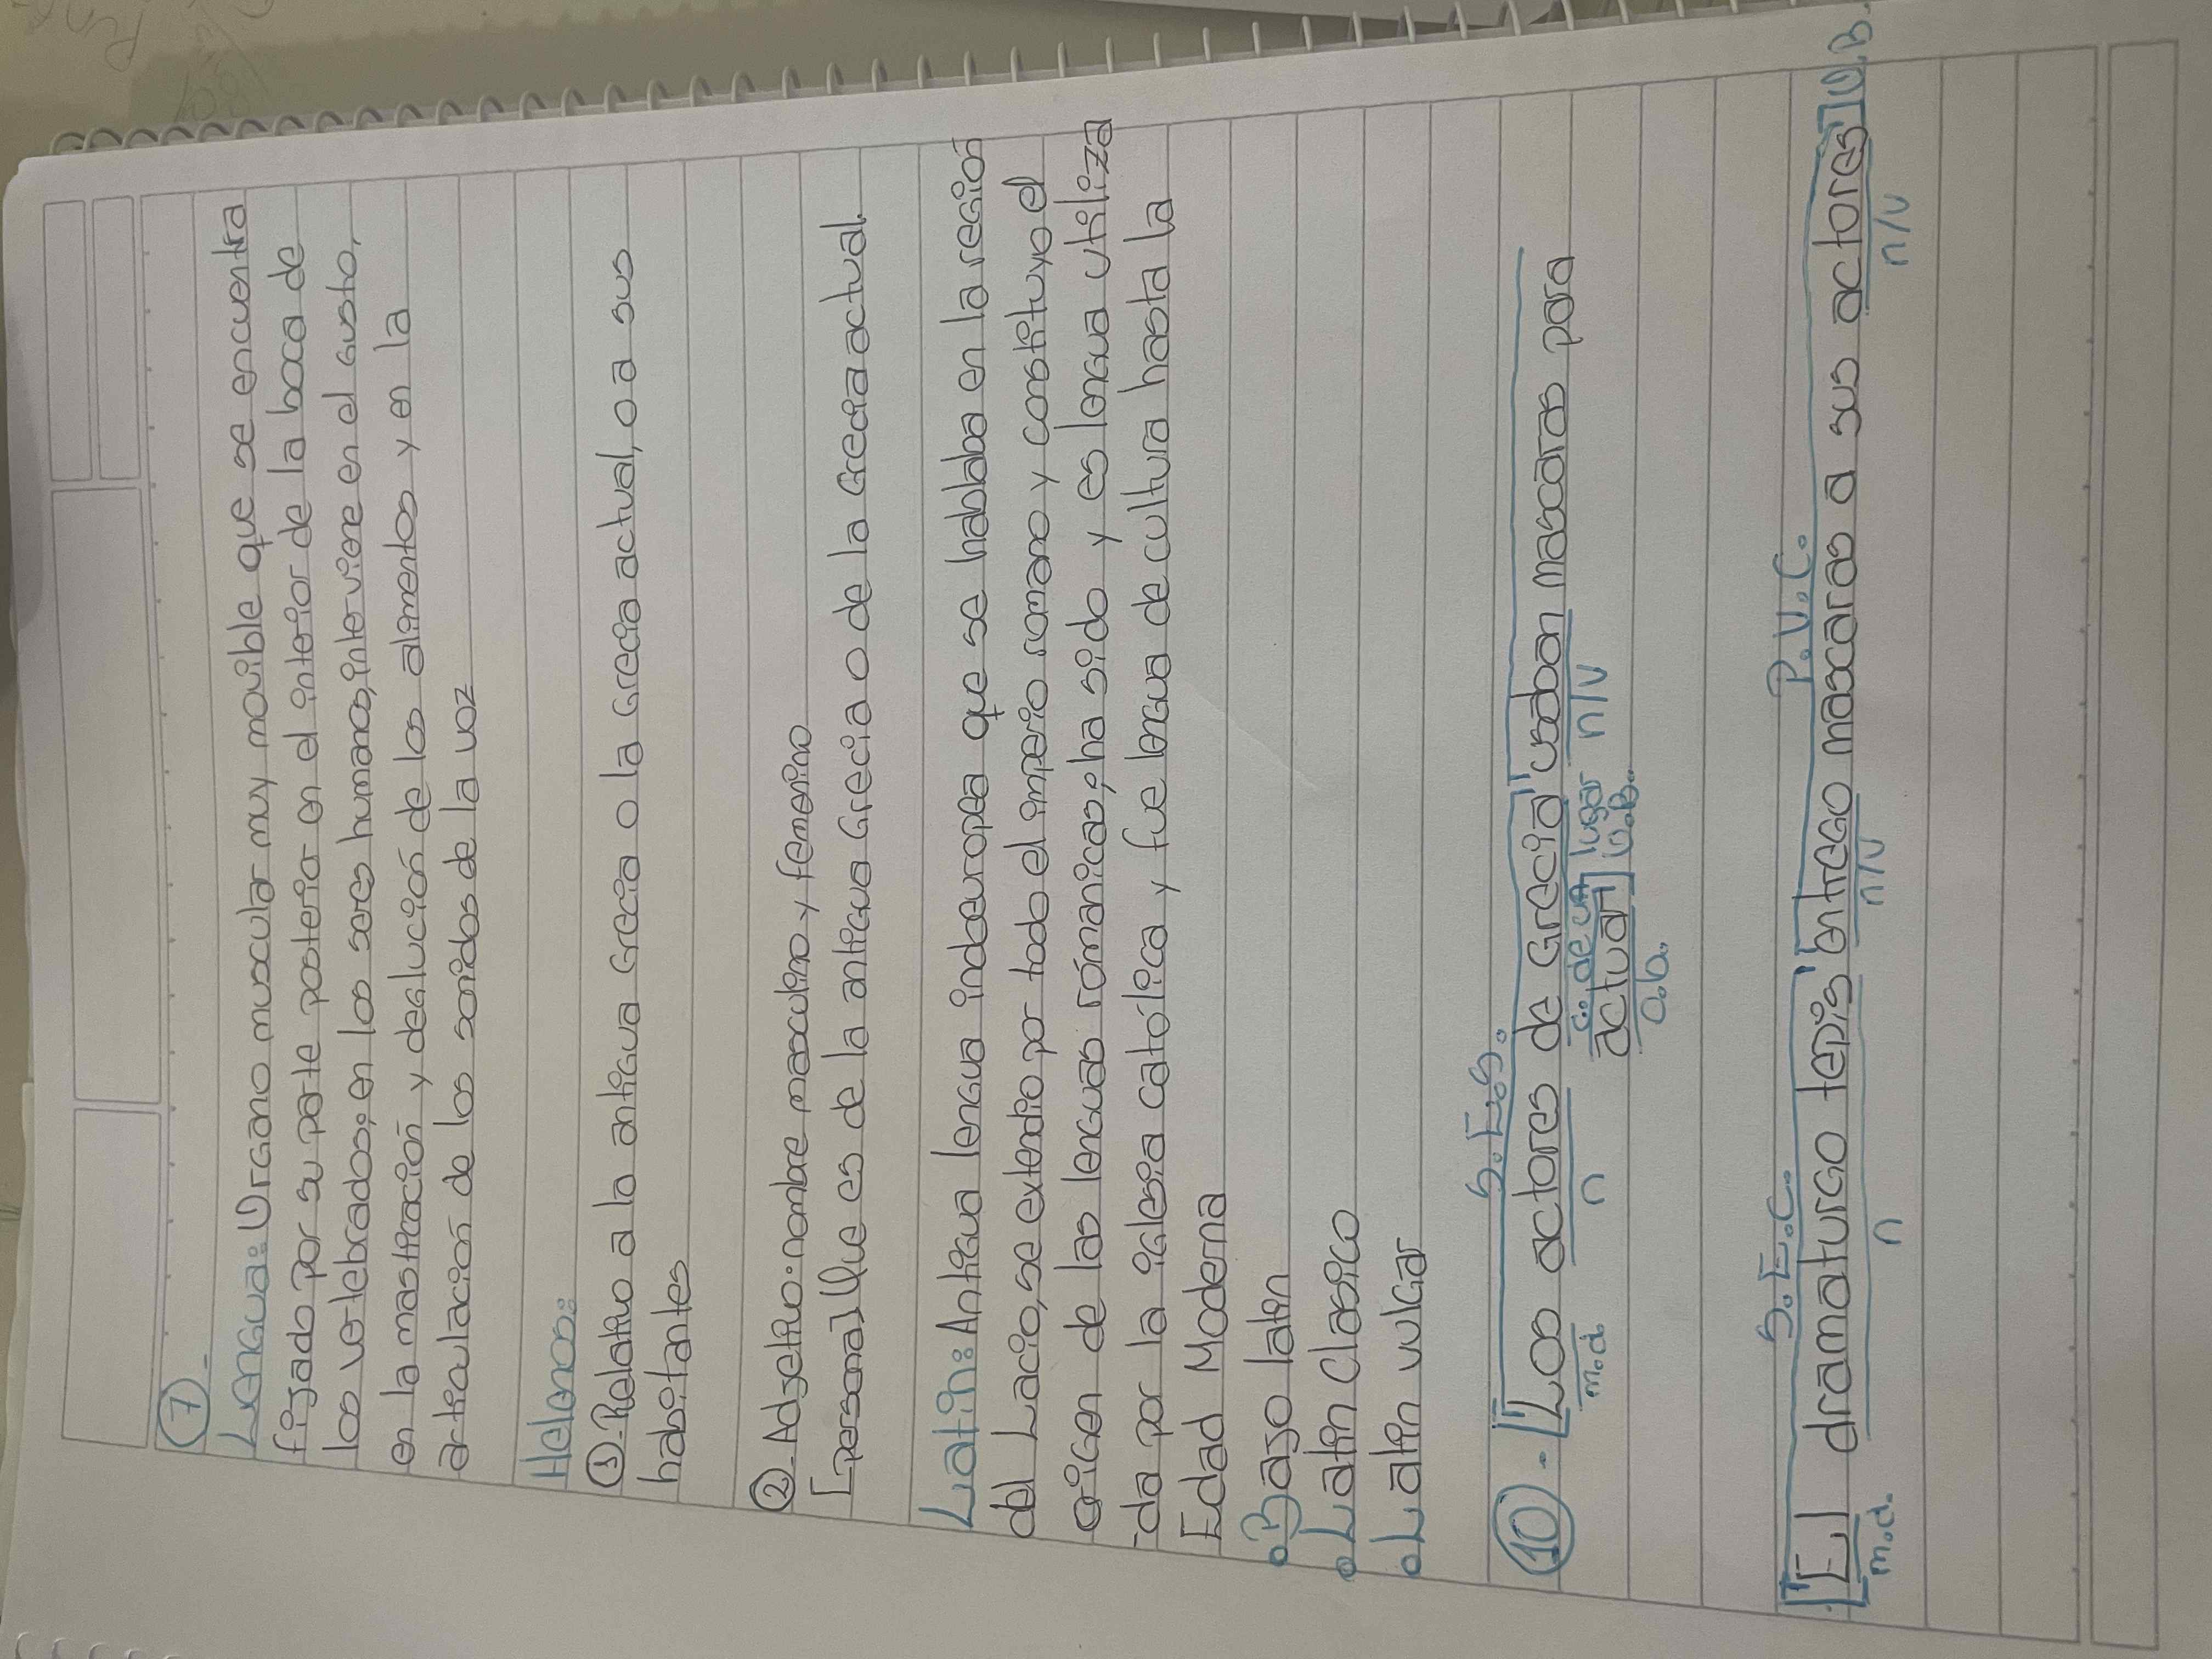 7-
Lengua: Organo muscular muy movible que se encuentra
fijado por su parte posterior en el interior de la boca de
los vertebrados; en los seres humanos, interviene en el gusto,
en la masticación y deglución de los alimentos y en la
articulación de los sonidos de la voz
Helenos:
① Relativo a la antigua Grecia o la Grecia actual, o a sus
habitantes
② Adjetivo: nombre masculino y femenino
[persona] Que es de la antigua Grecia o de la Grecia actual.
Latin: Antigua lengua indoeuropea que se hablaba en la región
del Lacio, se extendio por todo el imperio romano y constituyo el
origen de las lenguas románicas; ha sido y es lengua utiliza
-da por la iglesia católica y fue lengua de cultura hasta la
Edad Moderna
• Bajo latin
• Latin Clasico
• Latin vulgar
S.E.S.
10.- [Los actores de Grecia usban mascaras para
m.d. n c. de un lugar n/v
actuar] U.B.
o.b.
S.E.C. P.V.C.
[El dramaturgo tepis entrego mascaras a sus actores] U.B.
m.d. n n/v n/v